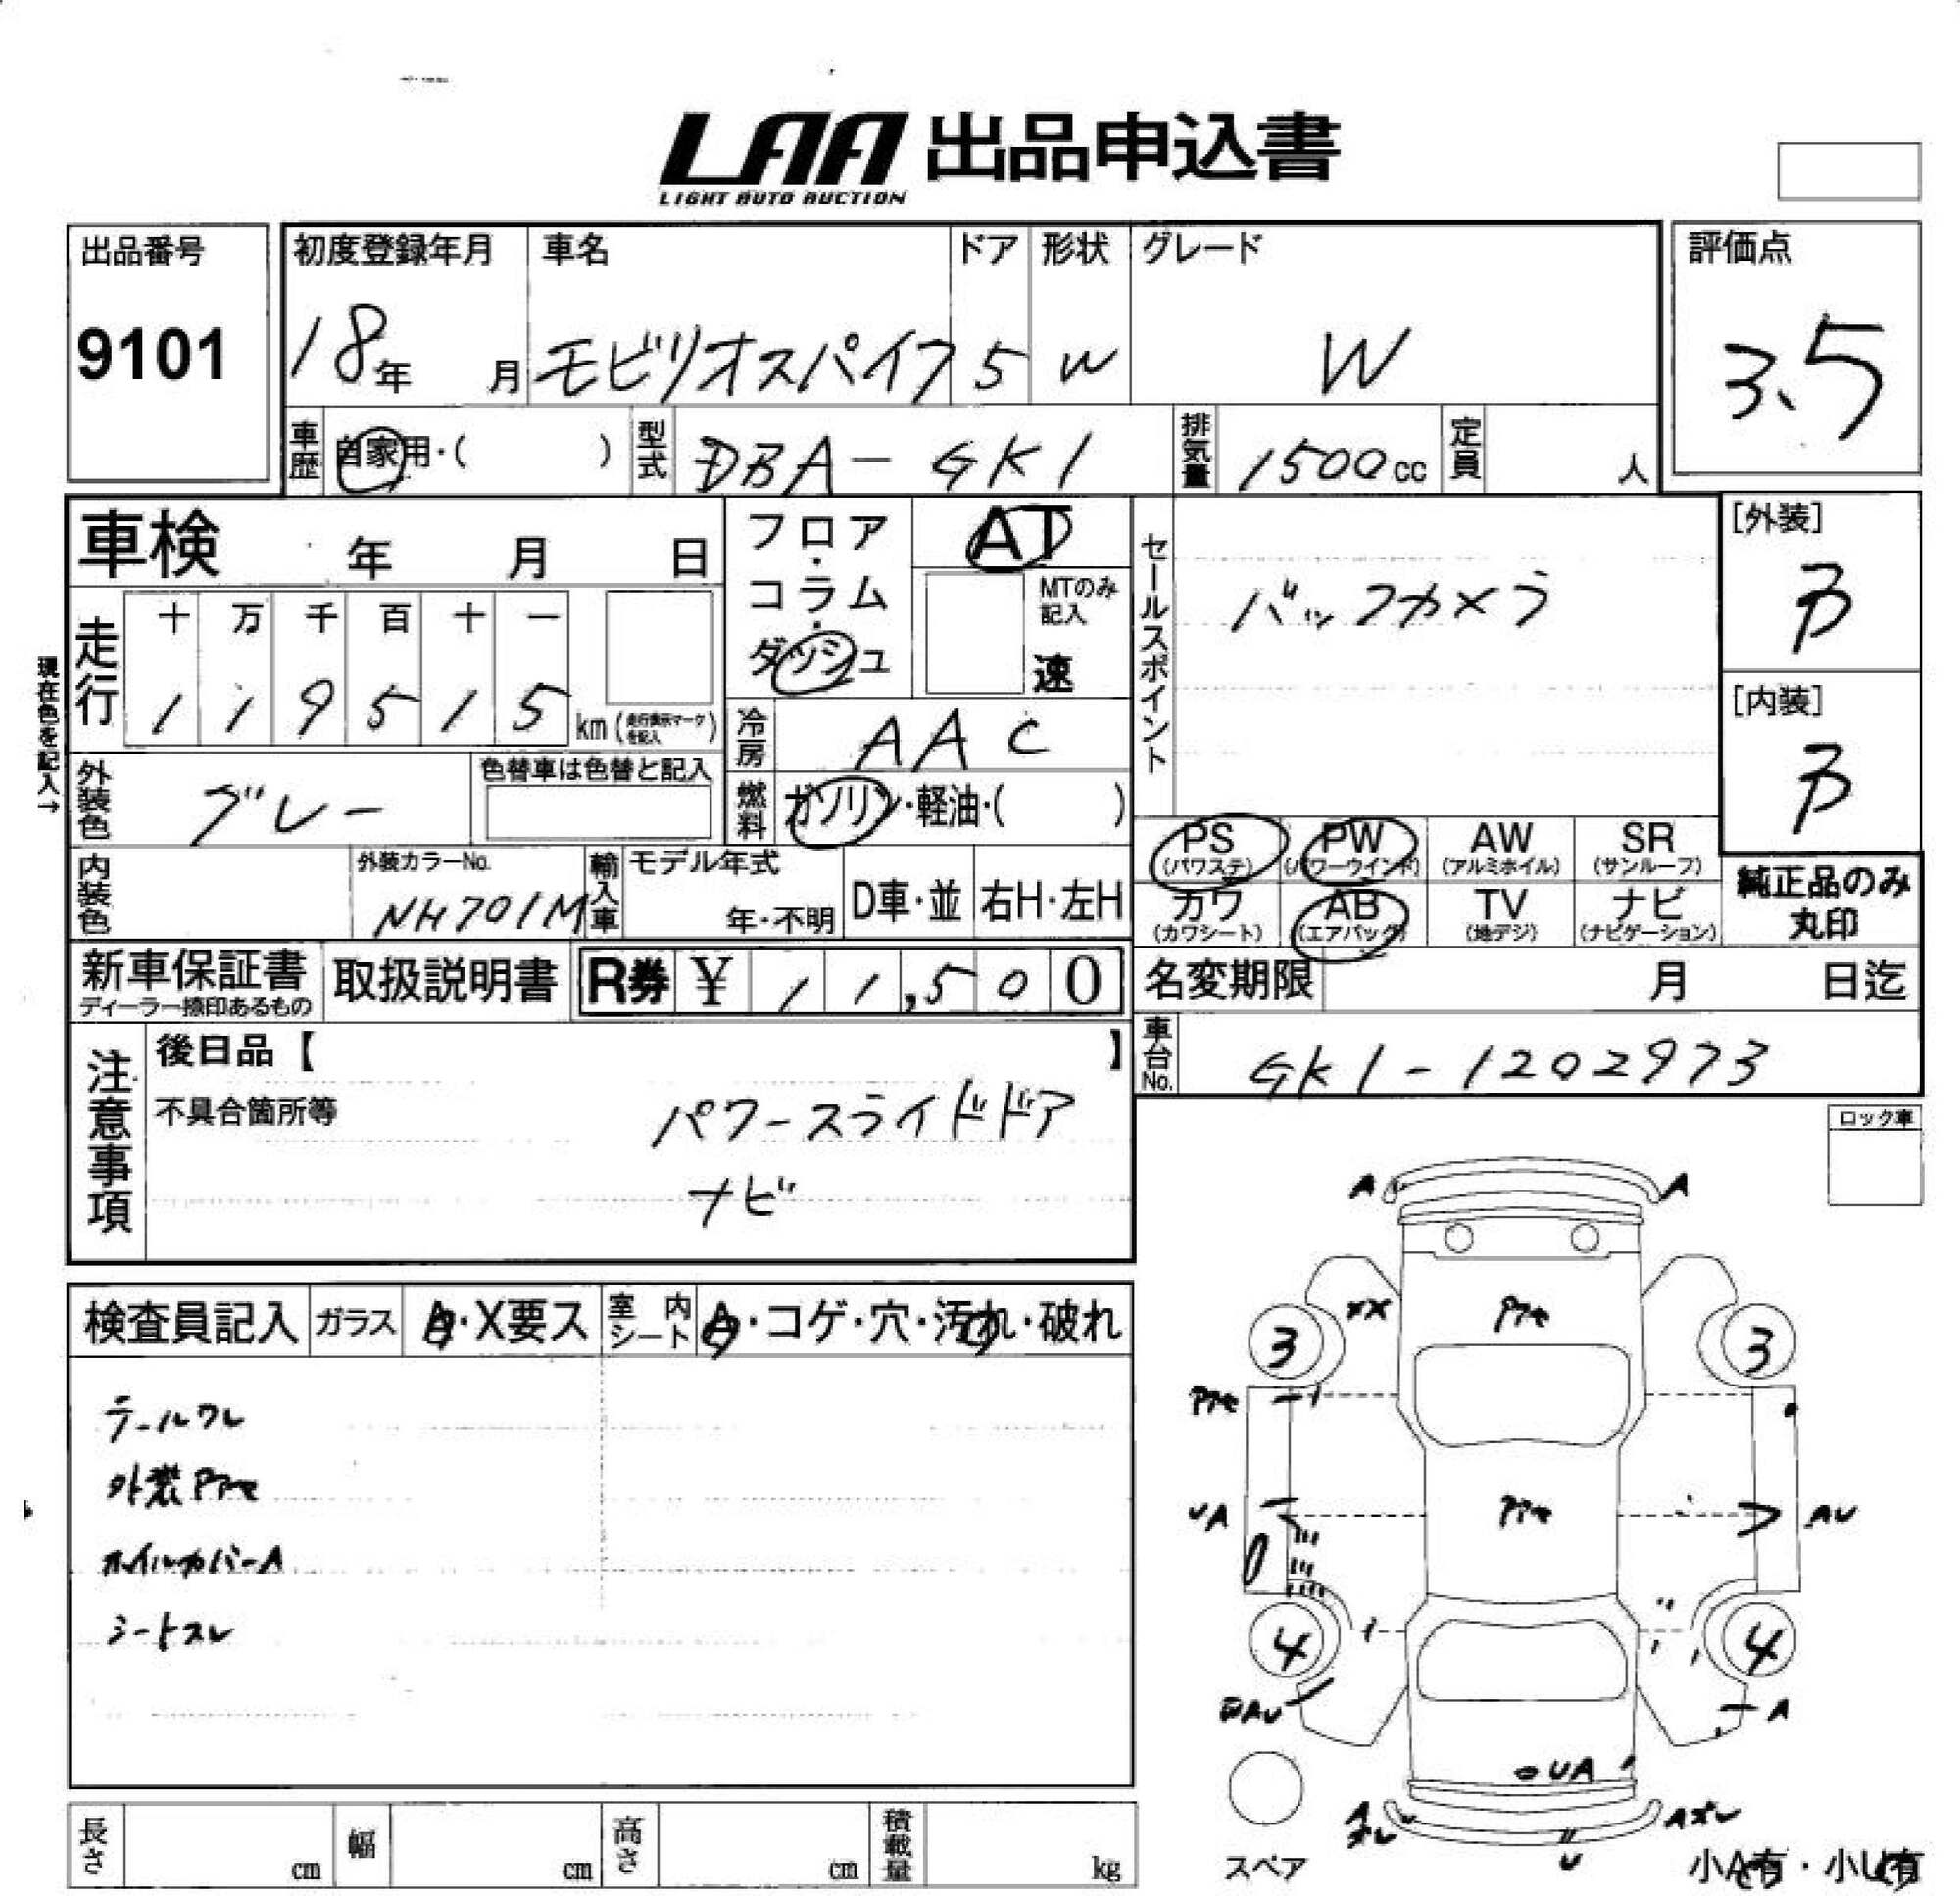 LAA 出品申込書
LIGHT AUTO AUCTION
出品番号
9101
初度登録年月
18年 月
車名
モビリオスパイク
ドア
5
形状
W
グレード
W
評価点
3.5
車歴
自家用・( )
型式
DBA-GK1
排気量
1500cc
定員
人
車検 年 月 日
フロア・コラム・ダッシュ
AT
MTのみ記入
速
セールスポイント
バックカメラ
[外装]
B
[内装]
B
現在色を記入→
走行
十 万 千 百 十 一
1 1 9 5 1 5
km(走行表示マークを記入)
冷房
AAC
外装色
グレー
色替車は色替と記入
燃料
ガソリン・軽油・( )
PS
(パワステ)
PW
(パワーウインド)
AW
(アルミホイル)
SR
(サンルーフ)
カワ
(カワシート)
AB
(エアバック)
TV
(地デジ)
ナビ
(ナビゲーション)
純正品のみ
丸印
内装色
外装カラーNo.
NH701M
輸入車
モデル年式
年・不明
D車・並
右H・左H
新車保証書
ディーラー捺印あるもの
取扱説明書
R券 ¥ 11,500
名変期限 月 日迄
車台No.
GK1-1202973
注意事項
後日品【 】
不具合箇所等
パワースライドドア
ナビ
ロック車
検査員記入
ガラス
A・X要ス
室内シート
A・コゲ・穴・汚れ・破れ
テールワレ
外装Pアセ
ホイルカバーA
シートスレ
A
A
XX
Pアセ
3
3
Pアセ
UA
Pアセ
AU
4
4
A
UA
A
ズレ
Aズレ
U
スペア
小A有・小U有
長さ cm
幅 cm
高さ cm
積載量 kg